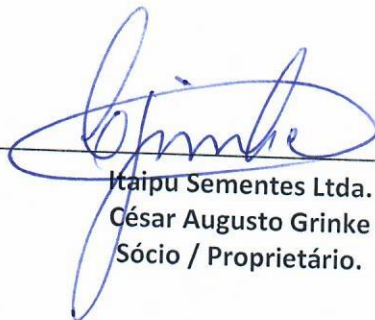 Itaipu Sementes Ltda.
César Augusto Grinke
Sócio / Proprietário.